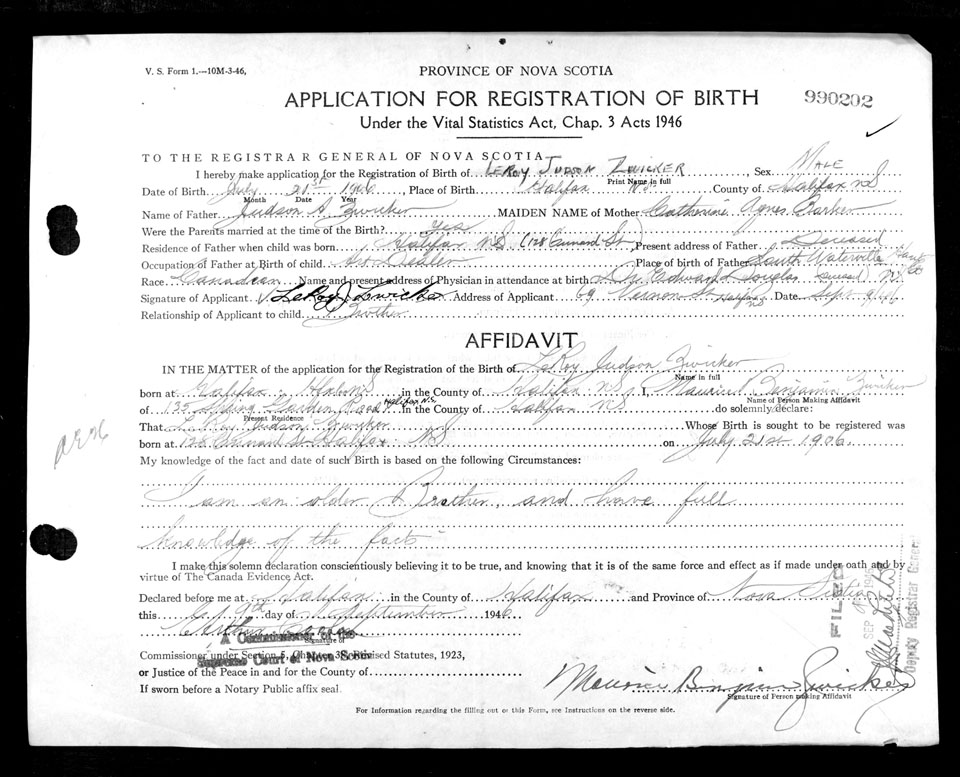 V. S. Form 1.—10M-3-46,
PROVINCE OF NOVA SCOTIA
APPLICATION FOR REGISTRATION OF BIRTH
990202
Under the Vital Statistics Act, Chap. 3 Acts 1946
TO THE REGISTRAR GENERAL OF NOVA SCOTIA
I hereby make application for Registration of Birth of LEROY JUDSON ZWICKER Sex MALE
Print Name in full
Date of Birth July 21st 1906 Place of Birth Halifax NS County of Halifax NS
Month Date Year
Name of Father Judson A. Zwicker MAIDEN NAME of Mother Catherine Agnes Barker
Were the Parents married at the time of Birth? Yes
Residence of Father when child was born Halifax NS (128 Cunard St) Present address of Father Deceased
Occupation of Father at Birth of child Art Dealer Place of Birth of Father South Waterville Hants
Race Canadian Name and present address of Physician in attendance at birth Edward Douglas
Signature of Applicant LeRoy J Zwicker Address of Applicant 69 Vernon St Halifax Date Sept 9/46
Relationship of Applicant to child Brother
AFFIDAVIT
IN THE MATTER of the application for the Registration of the Birth of LeRoy Judson Zwicker
Name in full
born at Halifax NS in the County of Halifax NS I, Maurice Benjamin Zwicker
Name of Person Making Affidavit
of 135 Spring Garden Road Halifax NS In the County of Halifax NS do solemnly declare:
Present Residence
That LeRoy Judson Zwicker Whose Birth is sought to be registered was
born at 128 Cunard St Halifax NS on July 21st 1906.
My knowledge of the fact and date of such Birth is based on the following Circumstances:
I am an older Brother, and have full
knowledge of the facts
I make this solemn declaration conscientiously believing it to be true, and knowing that it is of the same force and effect as if made under oath and by
virtue of The Canada Evidence Act.
Declared before me at Halifax in the County of Halifax and Province of Nova Scotia
this 9th day of September 1946
A Commissioner of the
Signature of
Commissioner under Section 5, Chapter 38, Revised Statutes, 1923,
Supreme Court of Nova Scotia
or Justice of the Peace in and for the County of
If sworn before a Notary Public affix seal.
Maurice Benjamin Zwicker
Signature of Person making Affidavit
For Information regarding the filling out of this Form, see Instructions on the reverse side.
FILED
SEP
Deputy Registrar General